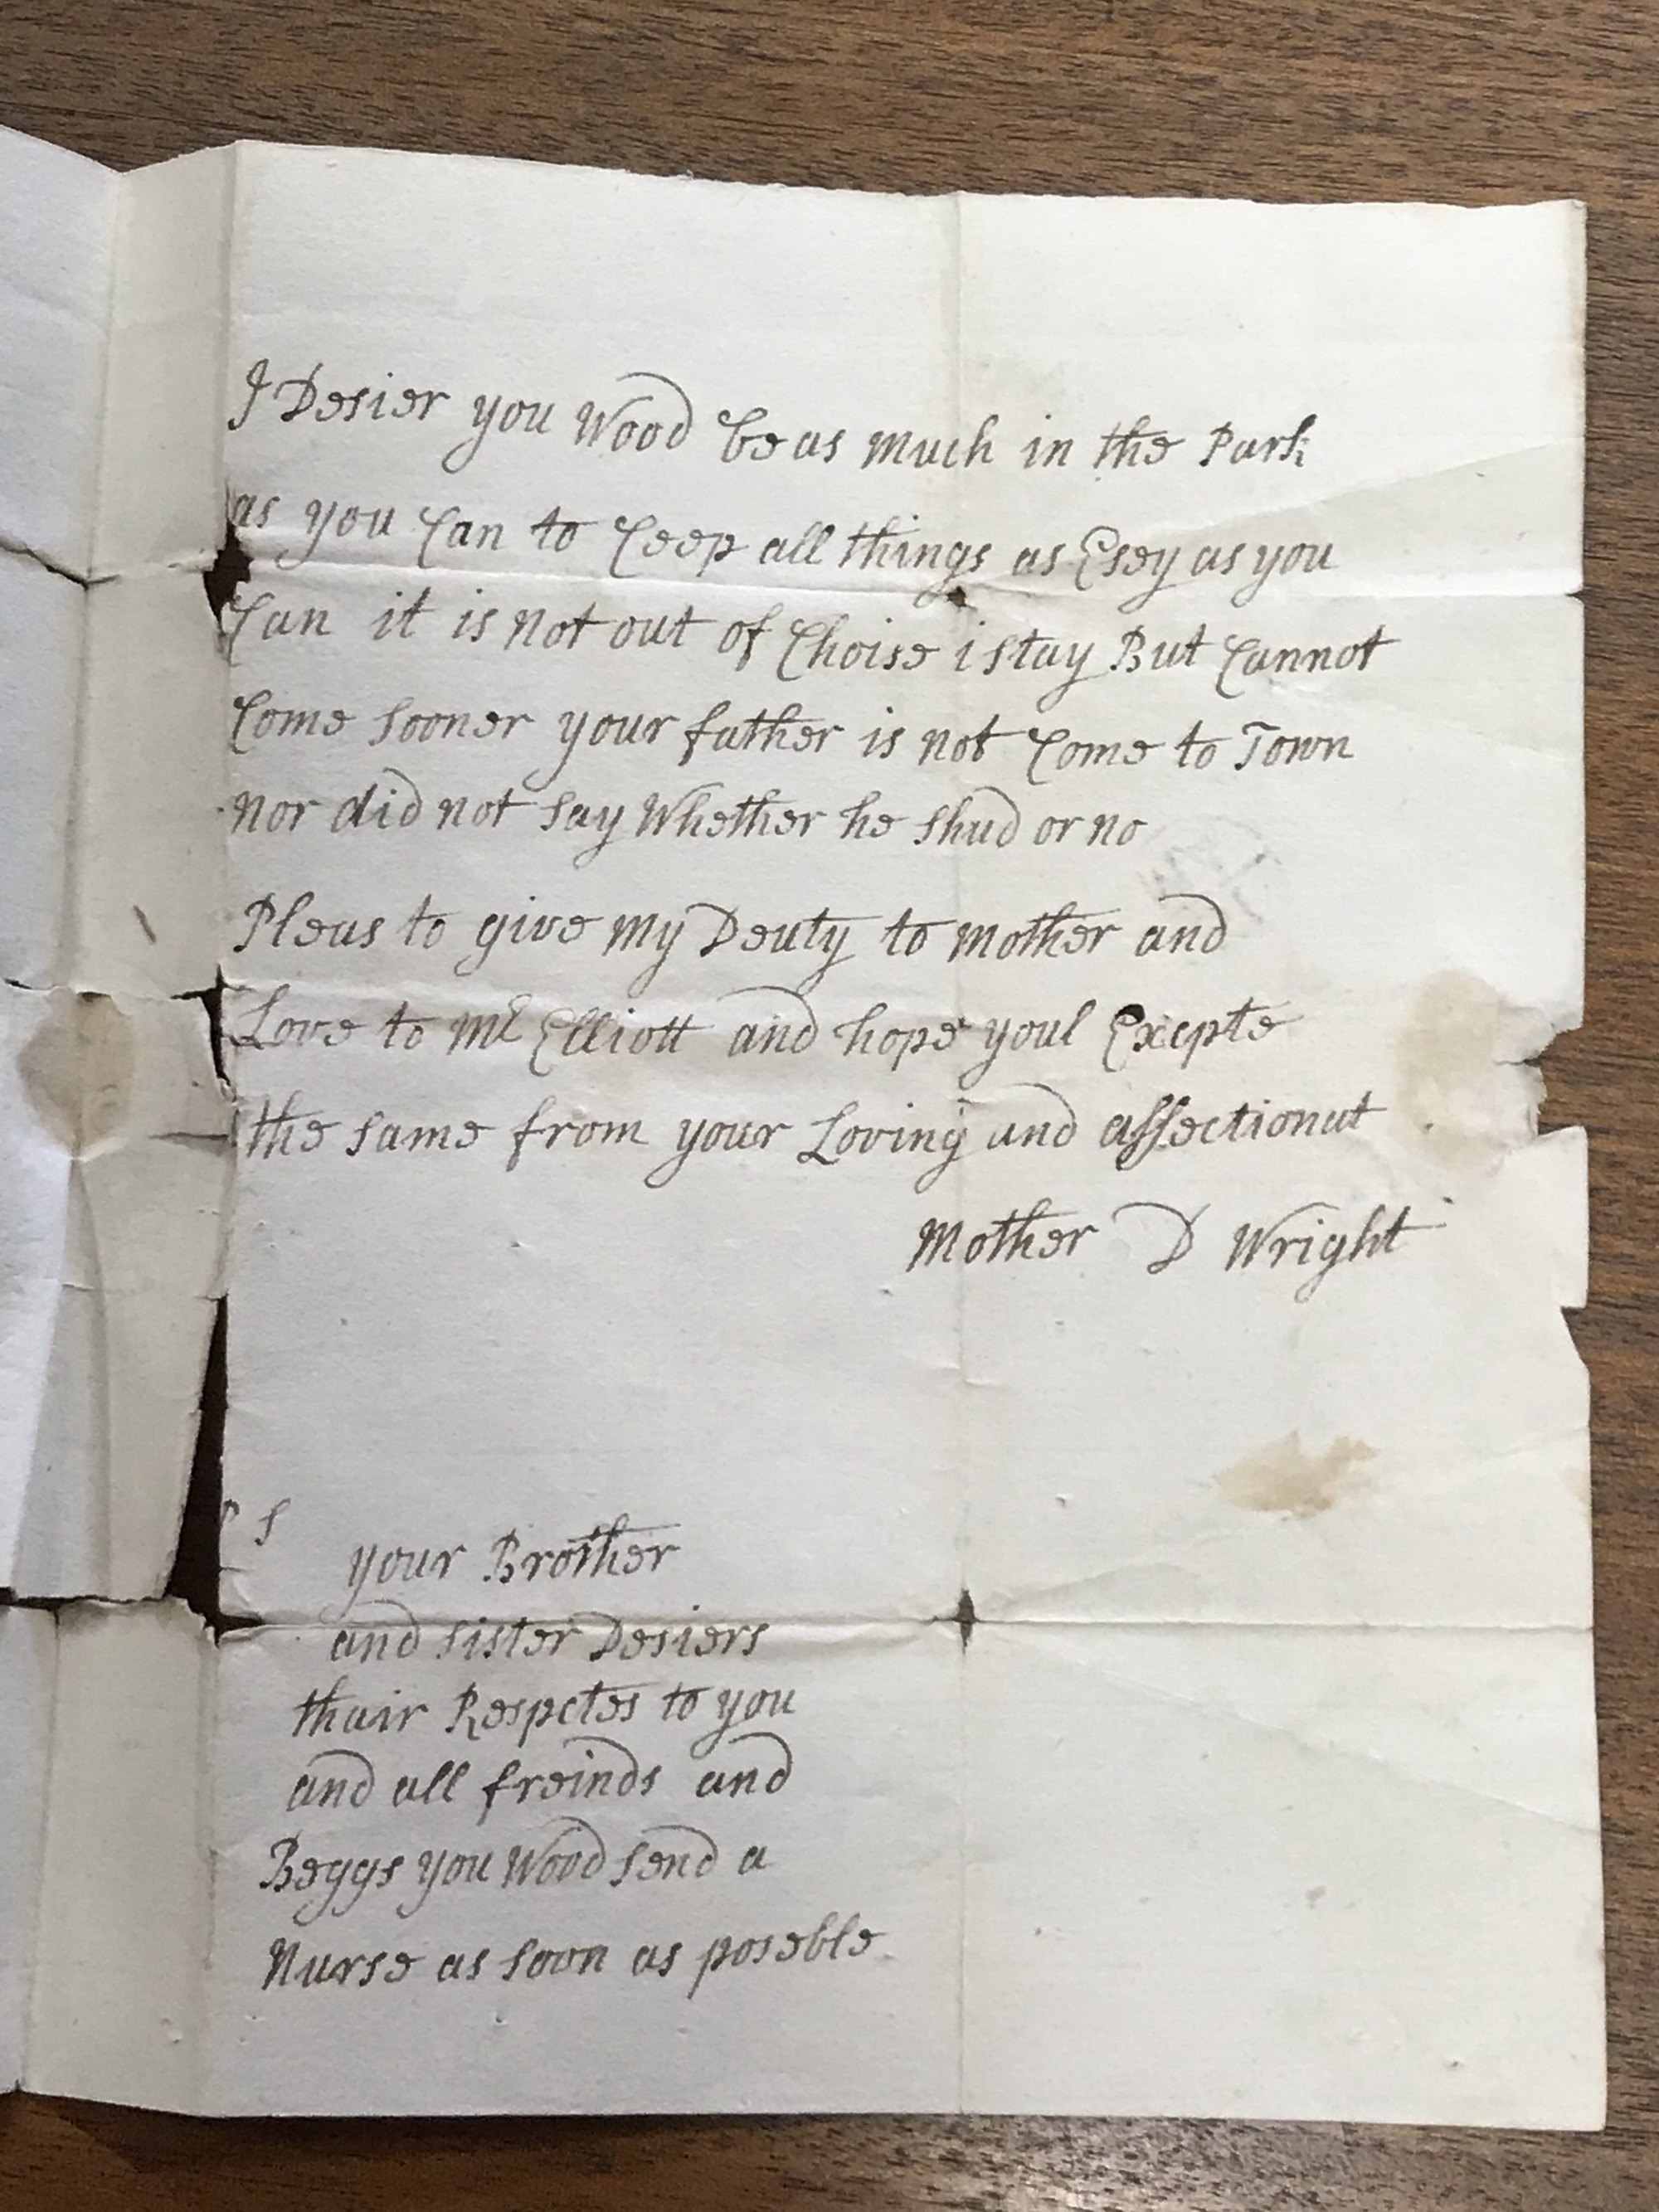 I Desier you Wood be as much in the Park
as you Can to Ceep all things as Esey as you
Can it is not out of Choise i stay But Cannot
Come sooner your father is not Come to Town
nor did not say Whether he shud or no
Pleas to give my Deuty to mother and
Love to Mr Elliott and hope youl Excpte
the same from your Loving and affectionat
Mother D Wright
P S
your Brother
and sister Desiers
thair Respctes to you
and all freinds and
Beggs you Wood send a
Nurse as soon as poseble